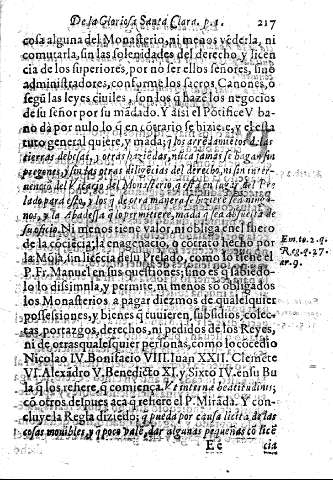 De la Gloriosa Santa Clara. p. 1. 217
cosa alguna del Monasterio, ni menos vēderla, ni
comutarla, sin las solenidades del derecho y licen
cia de los superiores, por no ser ellos señores, sino
administradores, conforme los sacros Canones, o
segũ las leyes ciuiles, son los q̃ hazē los negocios
de su señor por su mādado. Y assi el Pōtifice V
bano dà por nulo lo q̃ en cōtario se hiziere, y el esta
tuto general quiere, y māda; q̃ los arrēdamiētos
tierras debesas, y otras haziēdas, nūca jamas se hagan sin
pregones, y sin las otras diligēcias del derecho, ni sin inter-
uenciō del Vicario del Monasterio, q̃ està en lugar del Pre
lado para esto, y los q̃ de otra manera se hiziere seā ningu-
nos, y la Abadessa q̃ lo permitiere, māda q̃ sea absuelta de
su oficio. Ni menos tiene valor, ni obliga en el fuero
de la cōciēcia, la enagenaciō, o cōtrato hecho por
la Mōja, sin licēcia de su Prelado, como lo tiene el
P. Fr. Manuel en sus questiones; sino es q̃ sabiēdo-
lo lo dissimula, y permite, ni menos sō obligados
los Monasterios a pagar diezmos de qualesquier
possessiones, y bienes q̃ tuuierē, subsidios, colec-
tas, portazgos, derechos, ni pedidos de los Reyes,
ni de otras qualesquier personas, como lo cōcedio
Nicolao IV. Bonifacio VIII. Iuan XXII. Clemēte
VI. Alexādro V. Benedicto XI. y Sixto IV. en su Bu
la q̃ los refiere, q̃ comiença. Æterna beatitudinis;
cō otros despues acà q̃ refiere el P. Mirāda. Y con-
cluye la Regla diziēdo; q̃ pueda por causa licita de las
cosas mouibles, y q̃ poco valē, dar algunas pequeñas cō licē
E e cia
Em. to. 2. q.
Reg. q. 27.
ar. 9.